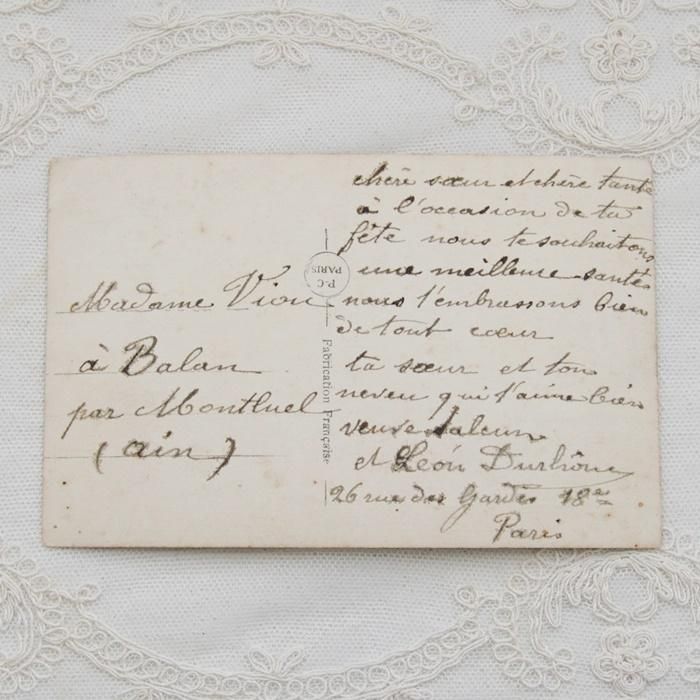 Madame Viou
à Balan
par Montluel
(ain)
P.C
PARIS
Fabrication Française
chère sœur et chère tante
à l'occasion de ta
fête nous te souhaitons
une meilleure santé
nous t'embrassons bien
de tout cœur
ta sœur et ton
neveu qui t'aime bien
veuve
et Léon
26 rue des Gardes 18e
Paris